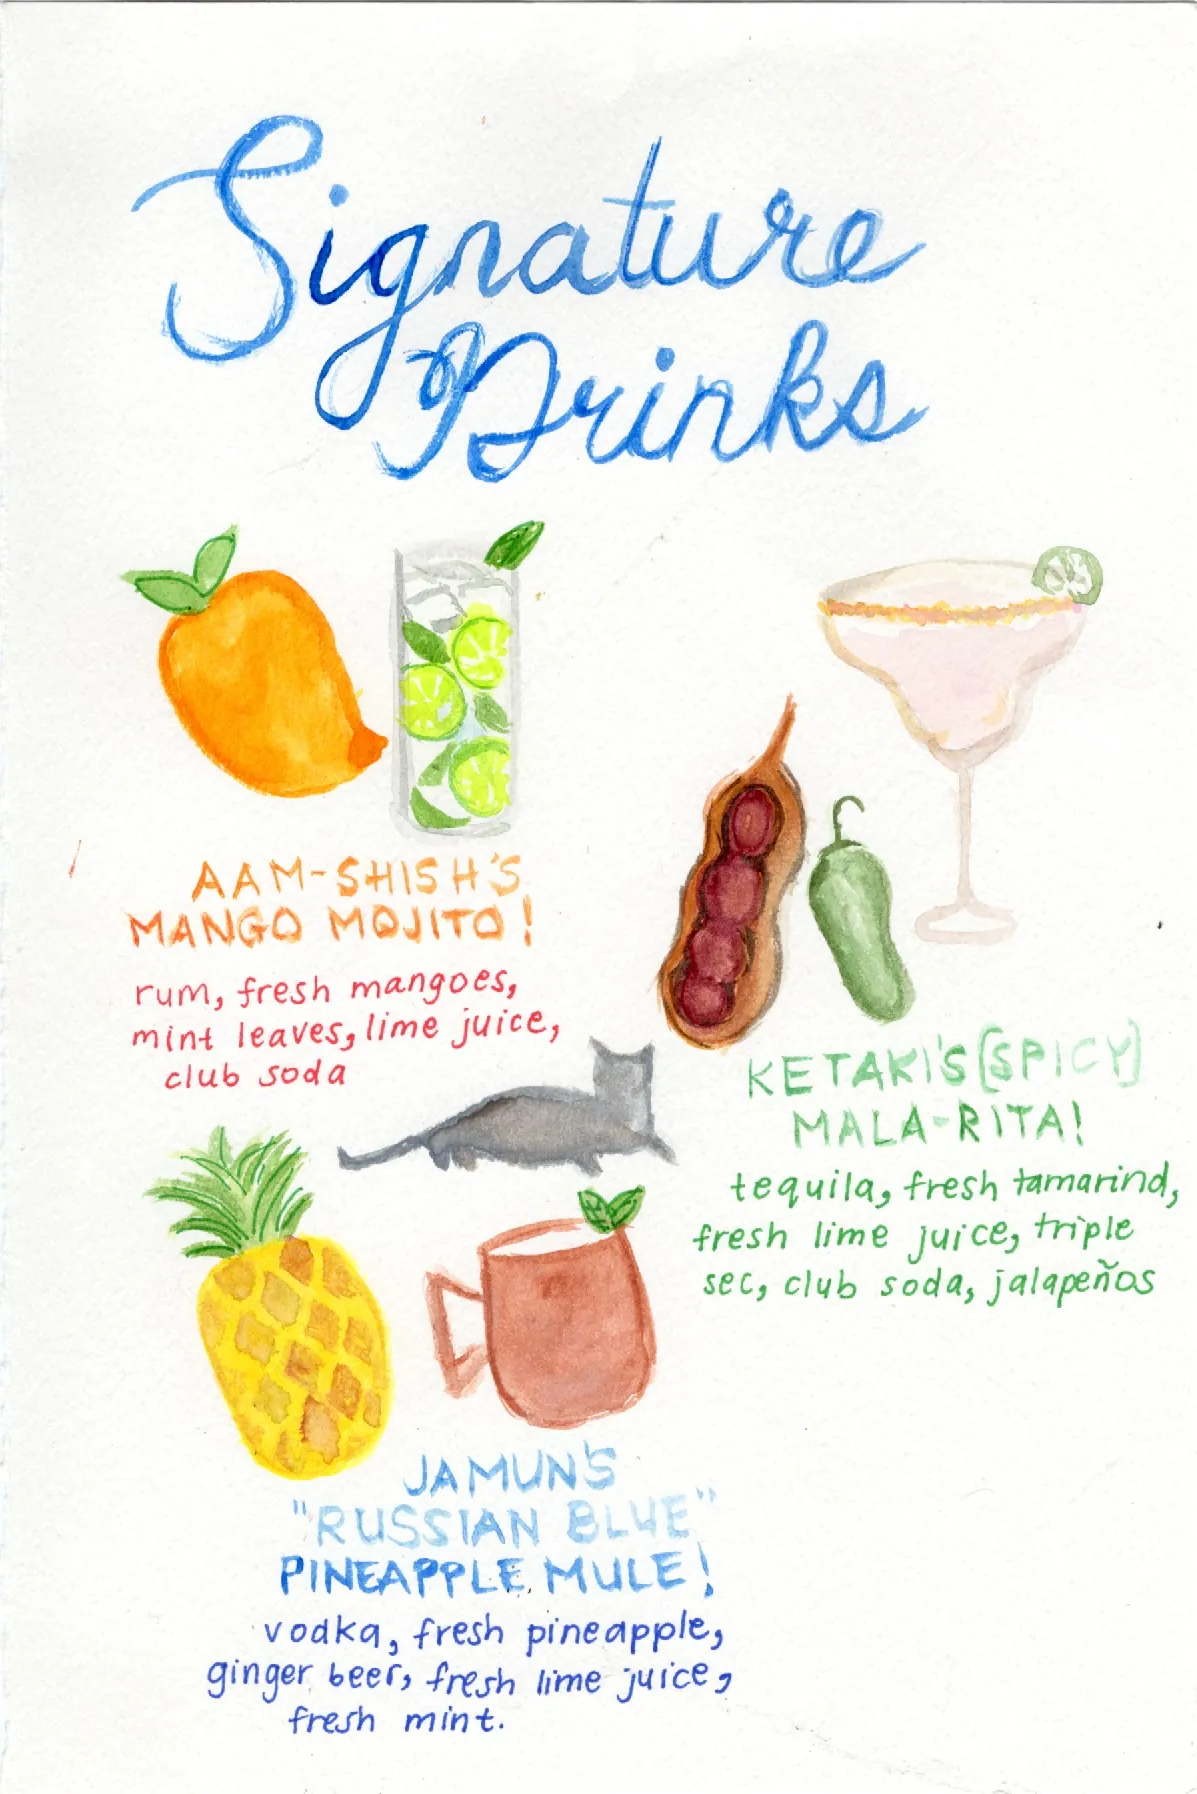 Signature
Drinks
AAM-SHISH'S
MANGO MOJITO!
rum, fresh mangoes,
mint leaves, lime juice,
club soda
KETAKI'S [SPICY]
MALA-RITA!
tequila, fresh tamarind,
fresh lime juice, triple
sec, club soda, jalapeños
JAMUN'S
"RUSSIAN BLUE"
PINEAPPLE MULE!
vodka, fresh pineapple,
ginger beer, fresh lime juice,
fresh mint.